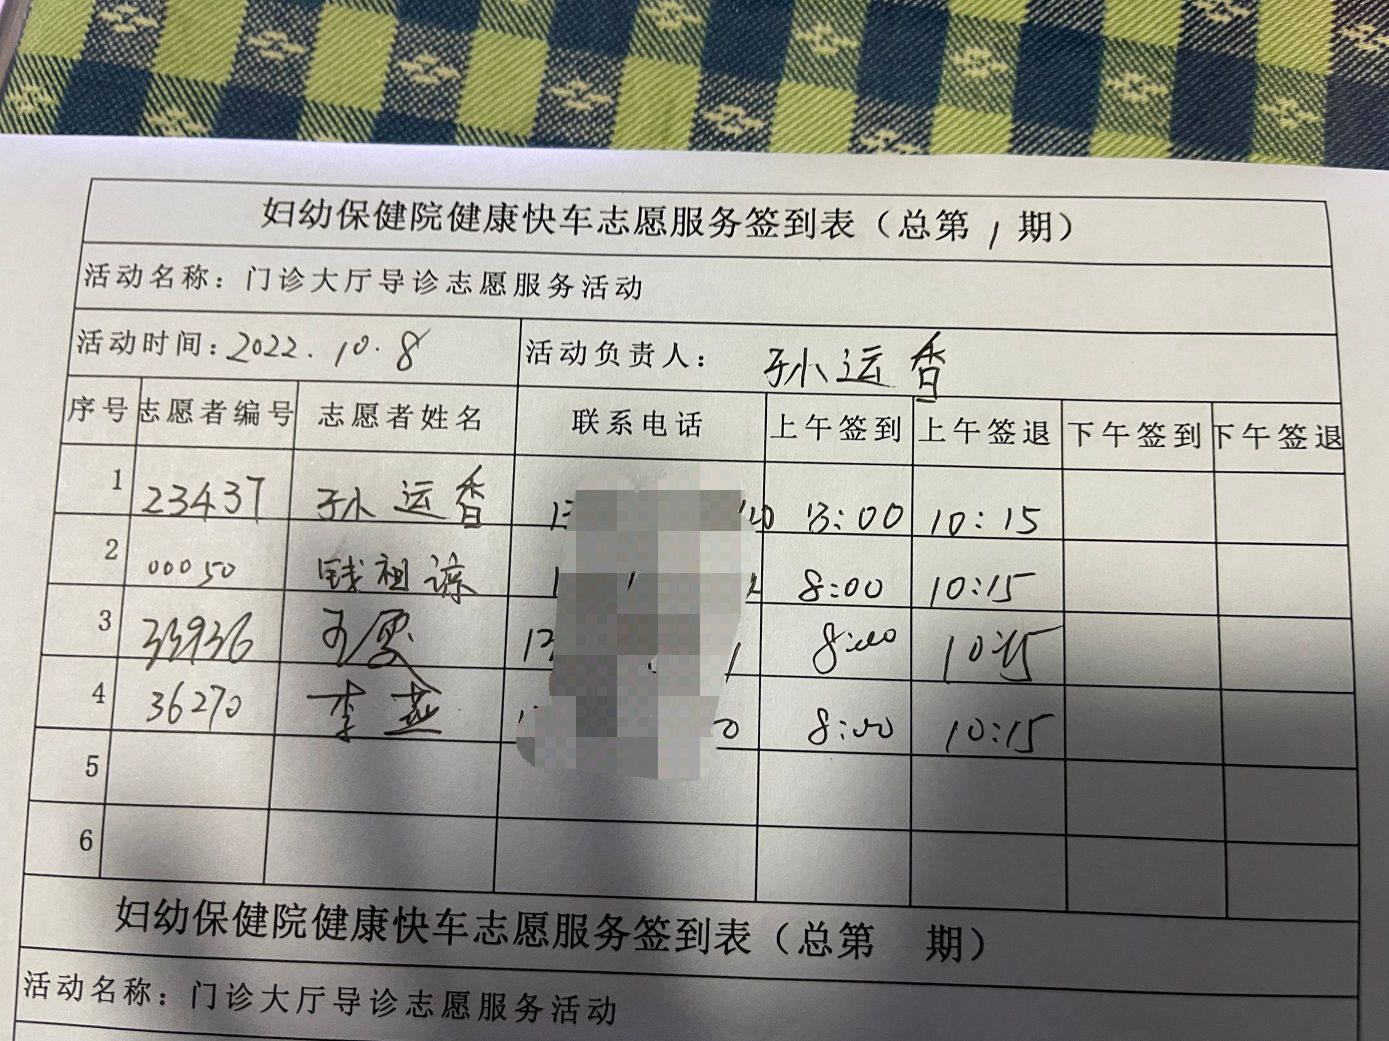 妇幼保健院健康快车志愿服务签到表（总第 1 期）
活动名称：门诊大厅导诊志愿服务活动
活动时间：2022.10.8 活动负责人： 孙运香
序号 志愿者编号 志愿者姓名 联系电话 上午签到 上午签退 下午签到 下午签退
1 23437 孙运香 10:15
2 00050 钱祖谅 8:00 10:15
3 33936 8:00 10:15
4 36270 李燕 8:00 10:15
5
6
妇幼保健院健康快车志愿服务签到表（总第 期）
活动名称：门诊大厅导诊志愿服务活动